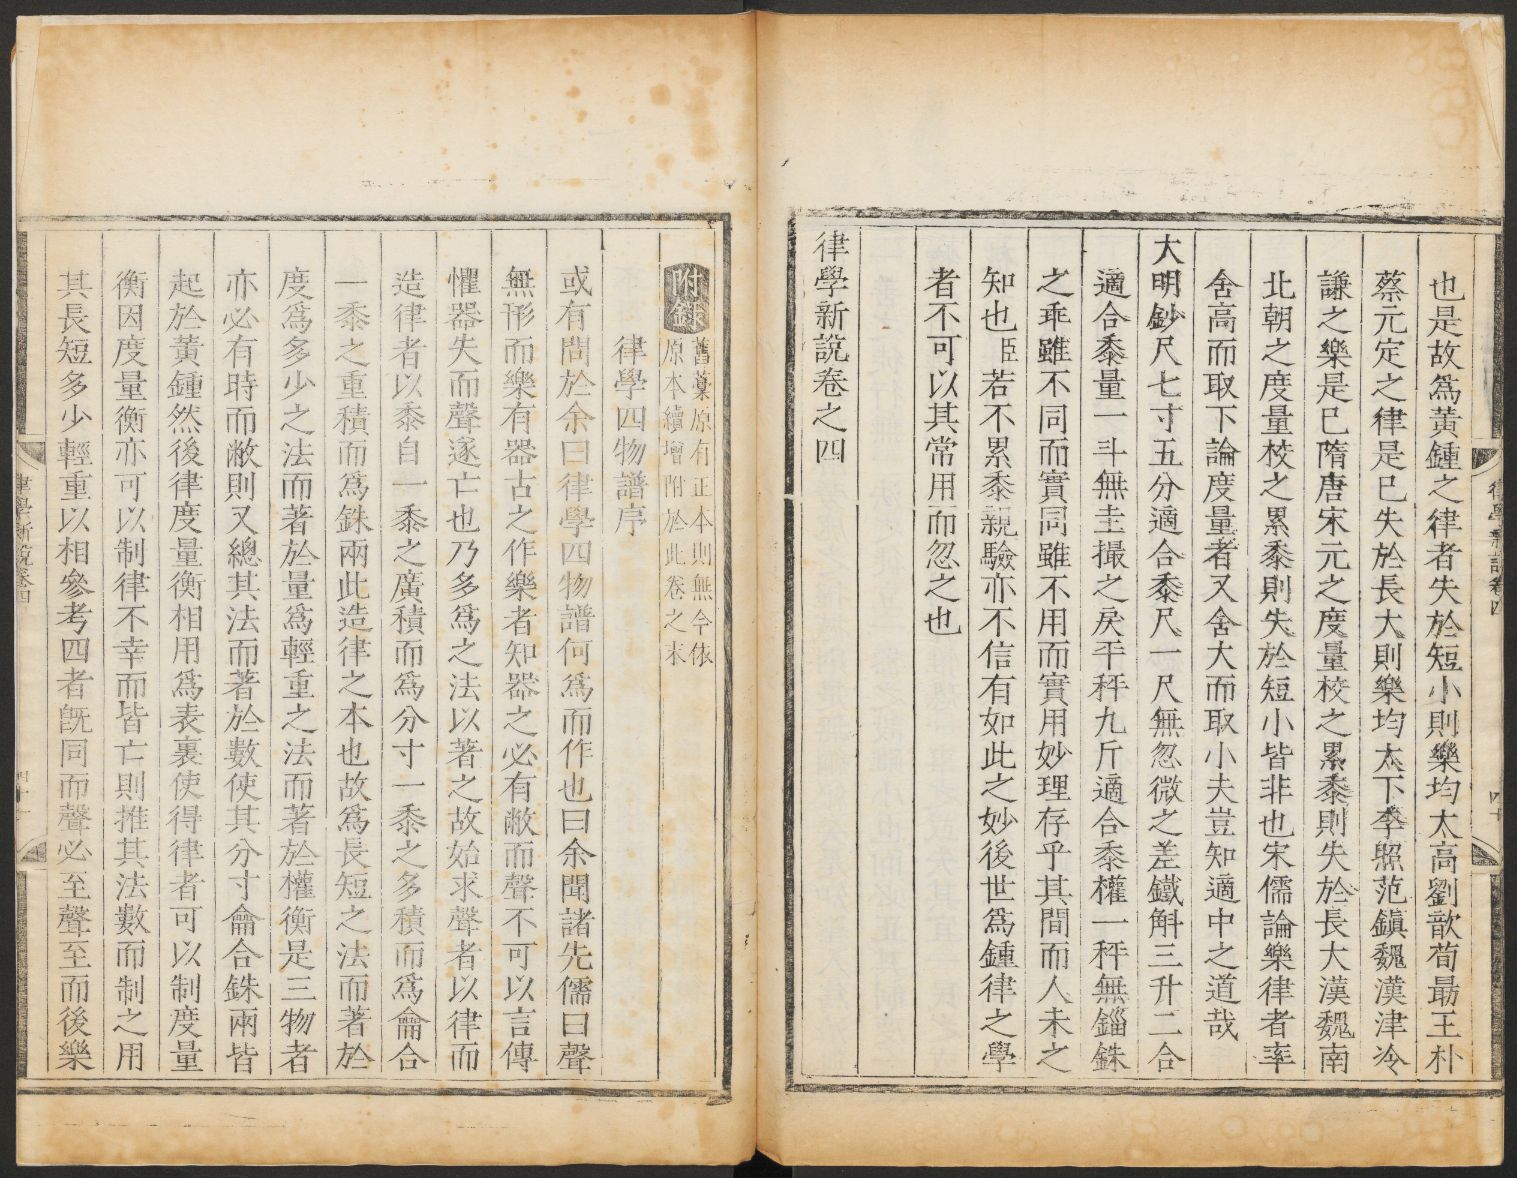 也是故爲黃鍾之律者失於短小則樂均太高劉歆荀勗王朴
蔡元定之律是已失於長大則樂均太下李照范鎮魏漢津冷
謙之樂是已隋唐宋元之度量校之累黍則失於長大漢魏南
北朝之度量校之累黍則失於短小皆非也宋儒論樂律者率
舍高而取下論度量者又舍大而取小夫豈知適中之道哉
大明鈔尺七寸五分適合黍尺一尺無忽微之差鐵斛三升二合
適合黍量一斗無圭撮之戾平秤九斤適合黍權一秤無錙銖
之乖雖不同而實同雖不用而實用妙理存乎其間而人未之
知也臣若不累黍親驗亦不信有如此之妙後世爲鍾律之學
者不可以其常用而忽之也
律學新說卷之四
律學新說卷四
四十
附錄
舊藁原有正本則無今依
原本續增附於此卷之末
律學四物譜序
或有問於余曰律學四物譜何爲而作也曰余聞諸先儒曰聲
無形而樂有器古之作樂者知器之必有敝而聲不可以言傳
懼器失而聲遂亡也乃多爲之法以著之故始求聲者以律而
造律者以黍自一黍之廣積而爲分寸一黍之多積而爲龠合
一黍之重積而爲銖兩此造律之本也故爲長短之法而著於
度爲多少之法而著於量爲輕重之法而著於權衡是三物者
亦必有時而敝則又總其法而著於數使其分寸龠合銖兩皆
起於黃鍾然後律度量衡相用爲表裏使得律者可以制度量
衡因度量衡亦可以制律不幸而皆亡則推其法數而制之用
其長短多少輕重以相參考四者旣同而聲必至聲至而後樂
律學新說卷四